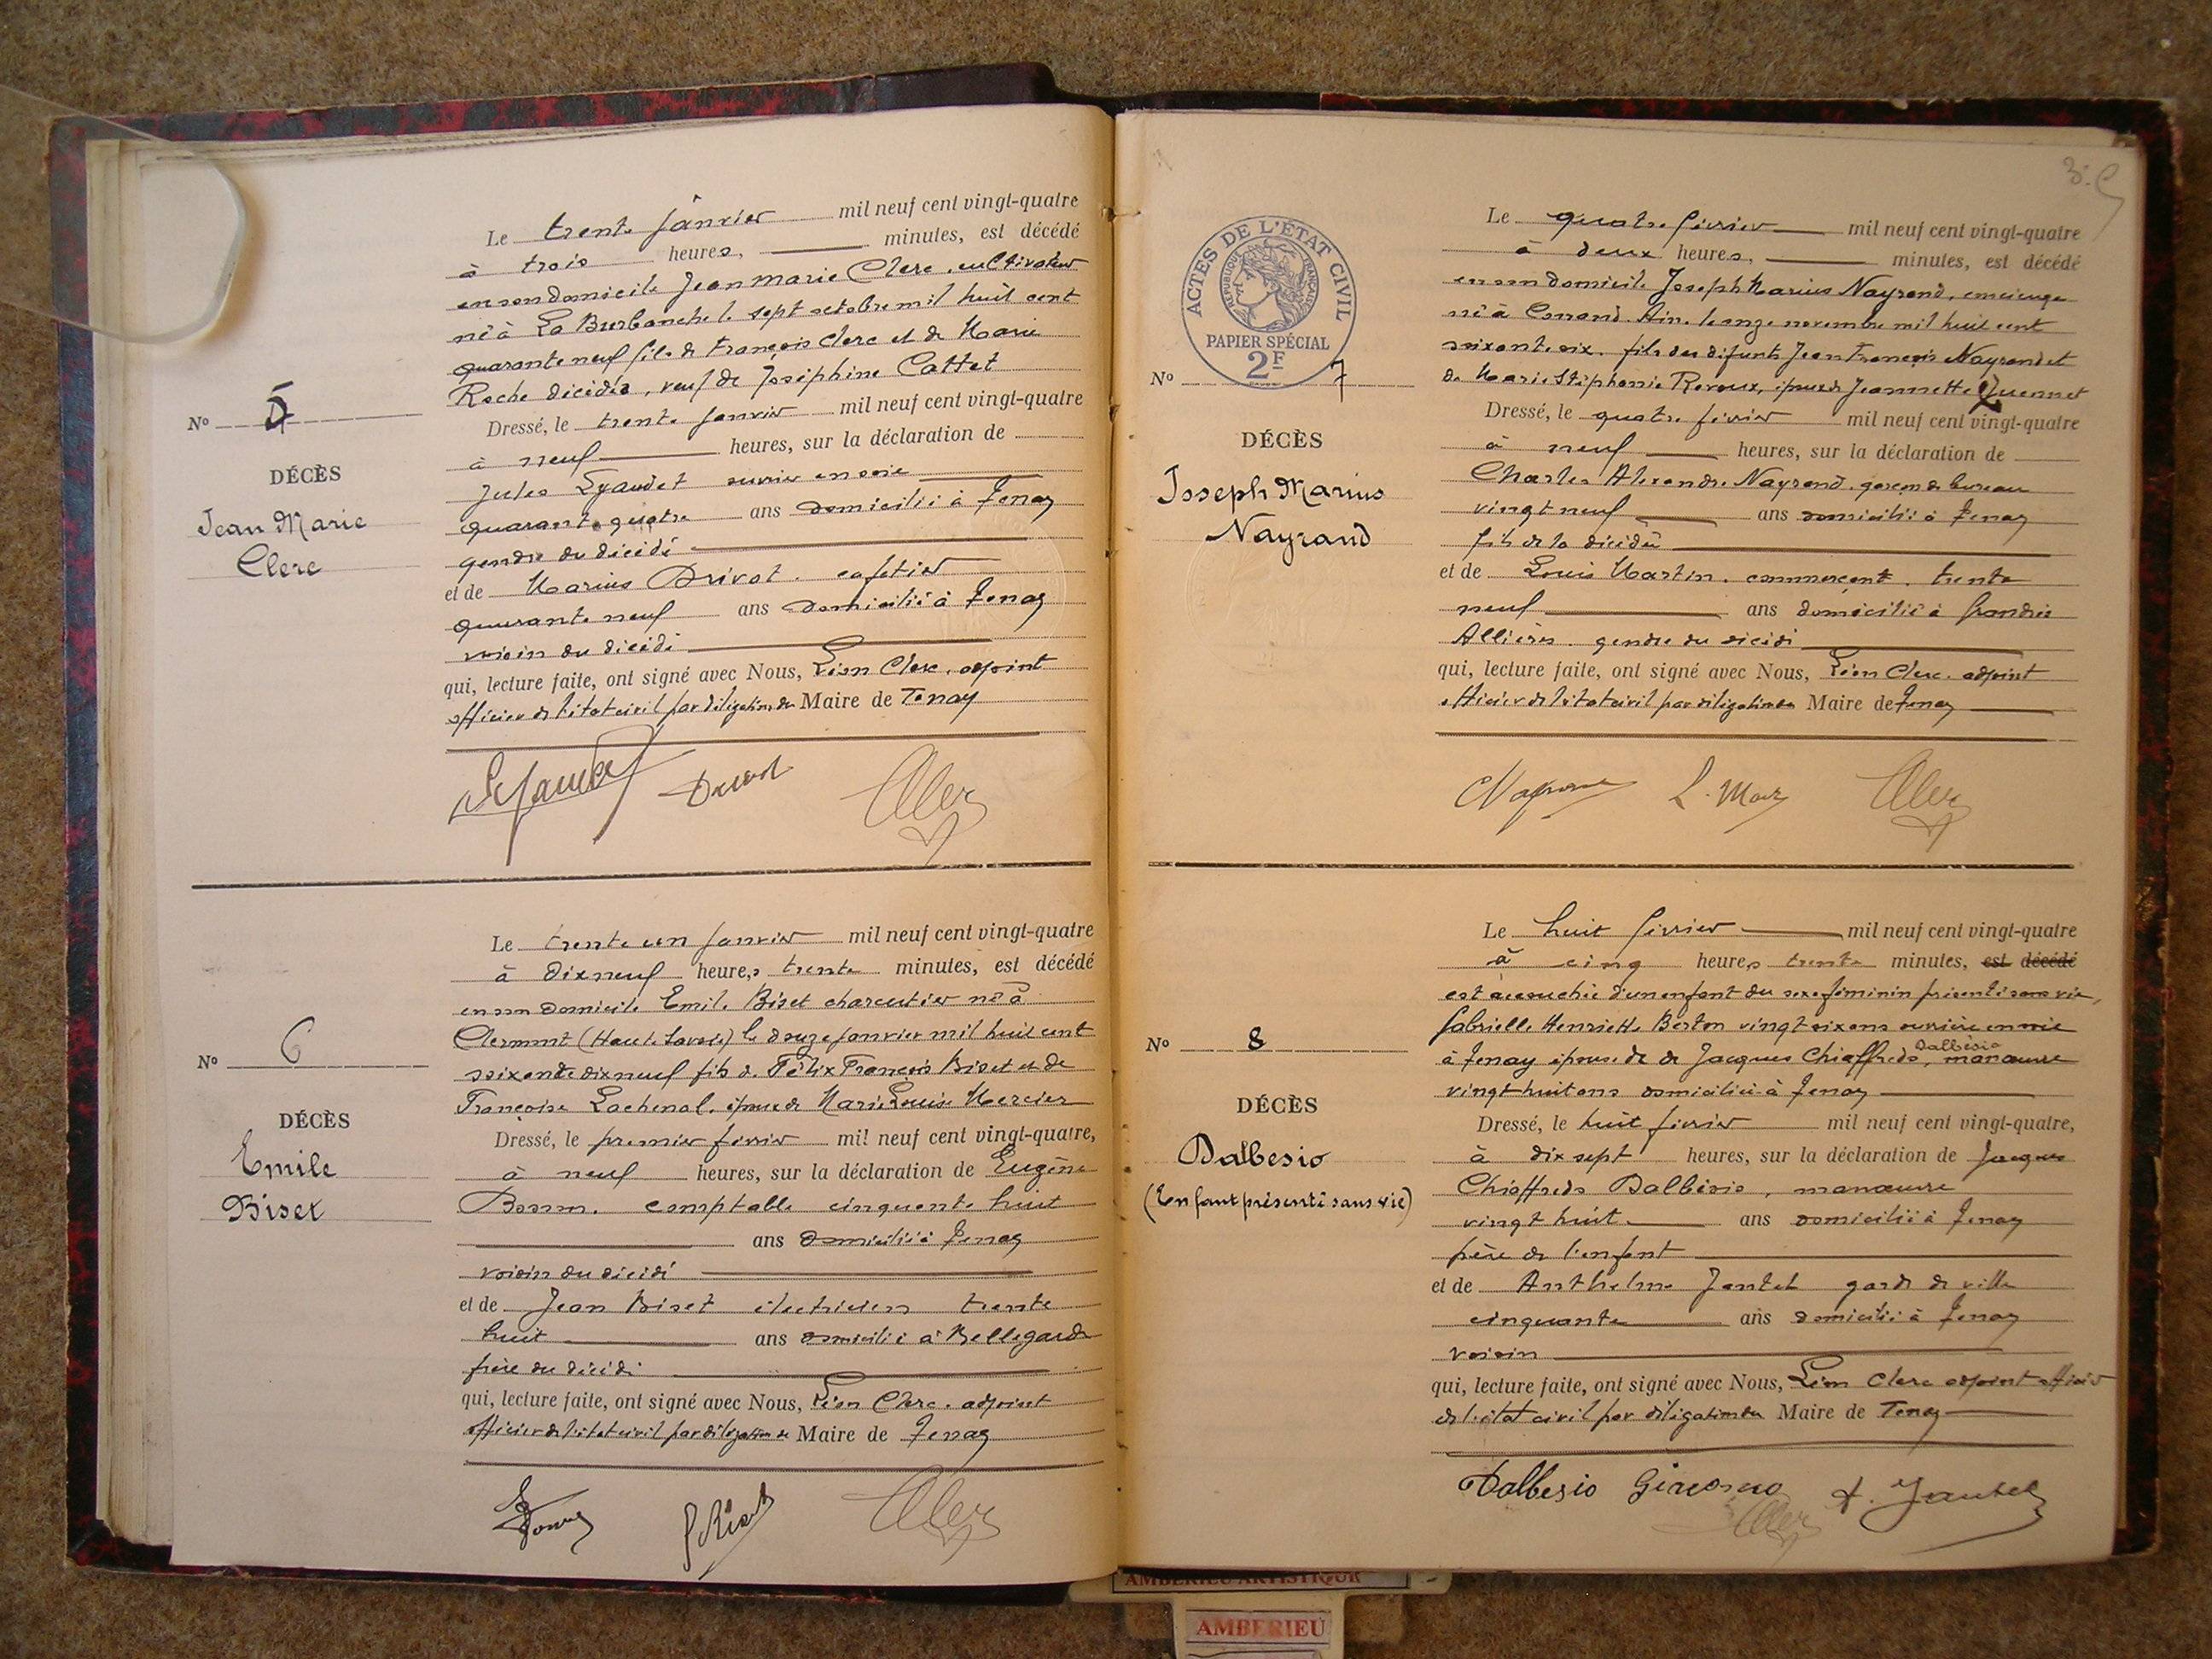 Le trente janvier mil neuf cent vingt-quatre
à trois heures, minutes, est décédé
en son domicile Jean Marie Clerc, cultivateur
né à La Burbanche le sept octobre mil huit cent
quarante neuf fils de François Clerc et de Marie
Roche décédés, veuf de Joséphine Cattet
Nº 5
DÉCÈS
Jean Marie
Clerc
Dressé, le trente janvier mil neuf cent vingt-quatre
à neuf heures, sur la déclaration de
Jules Lyaudet ouvrier en soie
quarante quatre ans domicilié à Tenay
gendre du décédé
et de Marius Drivot. cafetier
quarante neuf ans domicilié à Tenay
voisin du décédé
qui, lecture faite, ont signé avec Nous, Léon Clerc. adjoint
officier de l'état civil par délégation du Maire de Tenay
Le trente un janvier mil neuf cent vingt-quatre
à dix neuf heures trente minutes, est décédé
en son domicile Emile Biset charcutier né à
Clermont (Haute Savoie) le douze janvier mil huit cent
soixante dix neuf fils de Félix François Biset et de
Françoise Lachenal. époux de Marie Louise Mercier
Nº 6
DÉCÈS
Emile
Biset
Dressé, le premier février mil neuf cent vingt-quatre,
à neuf heures, sur la déclaration de Eugène
comptable cinquante huit
ans domicilié à Tenay
voisin du décédé
et de Jean Biset électricien trente
huit ans domicilié à Bellegarde
frère du décédé
qui, lecture faite, ont signé avec Nous, Léon Clerc. adjoint
officier de l'état civil par délégation du Maire de Tenay
3.
ACTES DE L'ÉTAT CIVIL
RÉPUBLIQUE FRANÇAISE
PAPIER SPÉCIAL
2F
Le quatre février mil neuf cent vingt-quatre
à deux heures, minutes, est décédé
en son domicile Joseph Marius Nayrand, concierge
né à Conand. Ain. le onze novembre mil huit cent
soixante six. fils des défunts Jean François Nayrand et
de Marie Stéphanie Ravoux, époux de Jeannette Quennet
Nº 7
DÉCÈS
Joseph Marius
Nayrand
Dressé, le quatre février mil neuf cent vingt-quatre
à neuf heures, sur la déclaration de
Charles Alexandre Nayrand. garçon de bureau
vingt neuf ans domicilié à Tenay
fils de la décédé
et de Louis Martin. commerçant. trente
neuf ans domicilié à
Allières. gendre du décédé
qui, lecture faite, ont signé avec Nous, Léon Clerc. adjoint
officier de l'état civil par délégation du Maire de Tenay
L. Mar
Le huit février mil neuf cent vingt-quatre
à cinq heures trente minutes, est décédé
est accouchée d'un enfant du sexe féminin présenté sans vie,
Gabrielle Henriette Berton vingt six ans ouvrière en soie
à Tenay épouse de de Jacques Chiaffredo Dalbésio, manœuvre
vingt huit ans domicilié à Tenay
Nº 8
DÉCÈS
Dalbesio
(Enfant présenté sans vie)
Dressé, le huit février mil neuf cent vingt-quatre,
à dix sept heures, sur la déclaration de Jacques
Chiaffredo Dalbésio, manœuvre
vingt huit ans domicilié à Tenay
père de l'enfant
et de Anthelme Jantet garde de ville
cinquante ans domicilié à Tenay
voisin
qui, lecture faite, ont signé avec Nous, Léon Clerc adjoint officier
de l'état civil par délégation du Maire de Tenay
Dalbesio Giacomo A. Jantet
AMBERIEU ARTISTIQUE
AMBERIEU